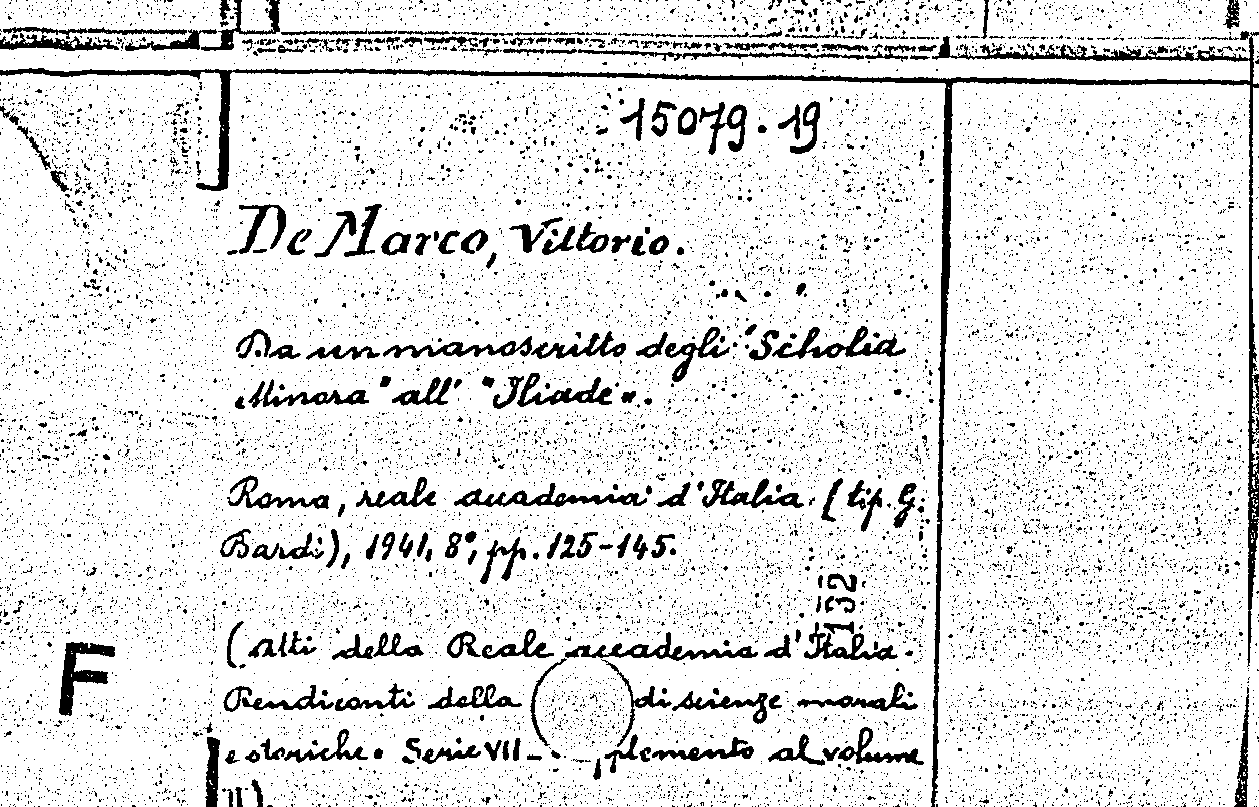 15079.19
De Marco, Vittorio.
Da un manoscritto degli "Scholia
Minora" all' "Iliade".
Roma, reale accademia d'Italia (tip. G.
Bardi), 1941, 8°, pp. 125-145.
132
(Atti della Reale accademia d'Italia.
F
Rendiconti della di scienze morali
e storiche. Serie VII - plemento al volume
II).